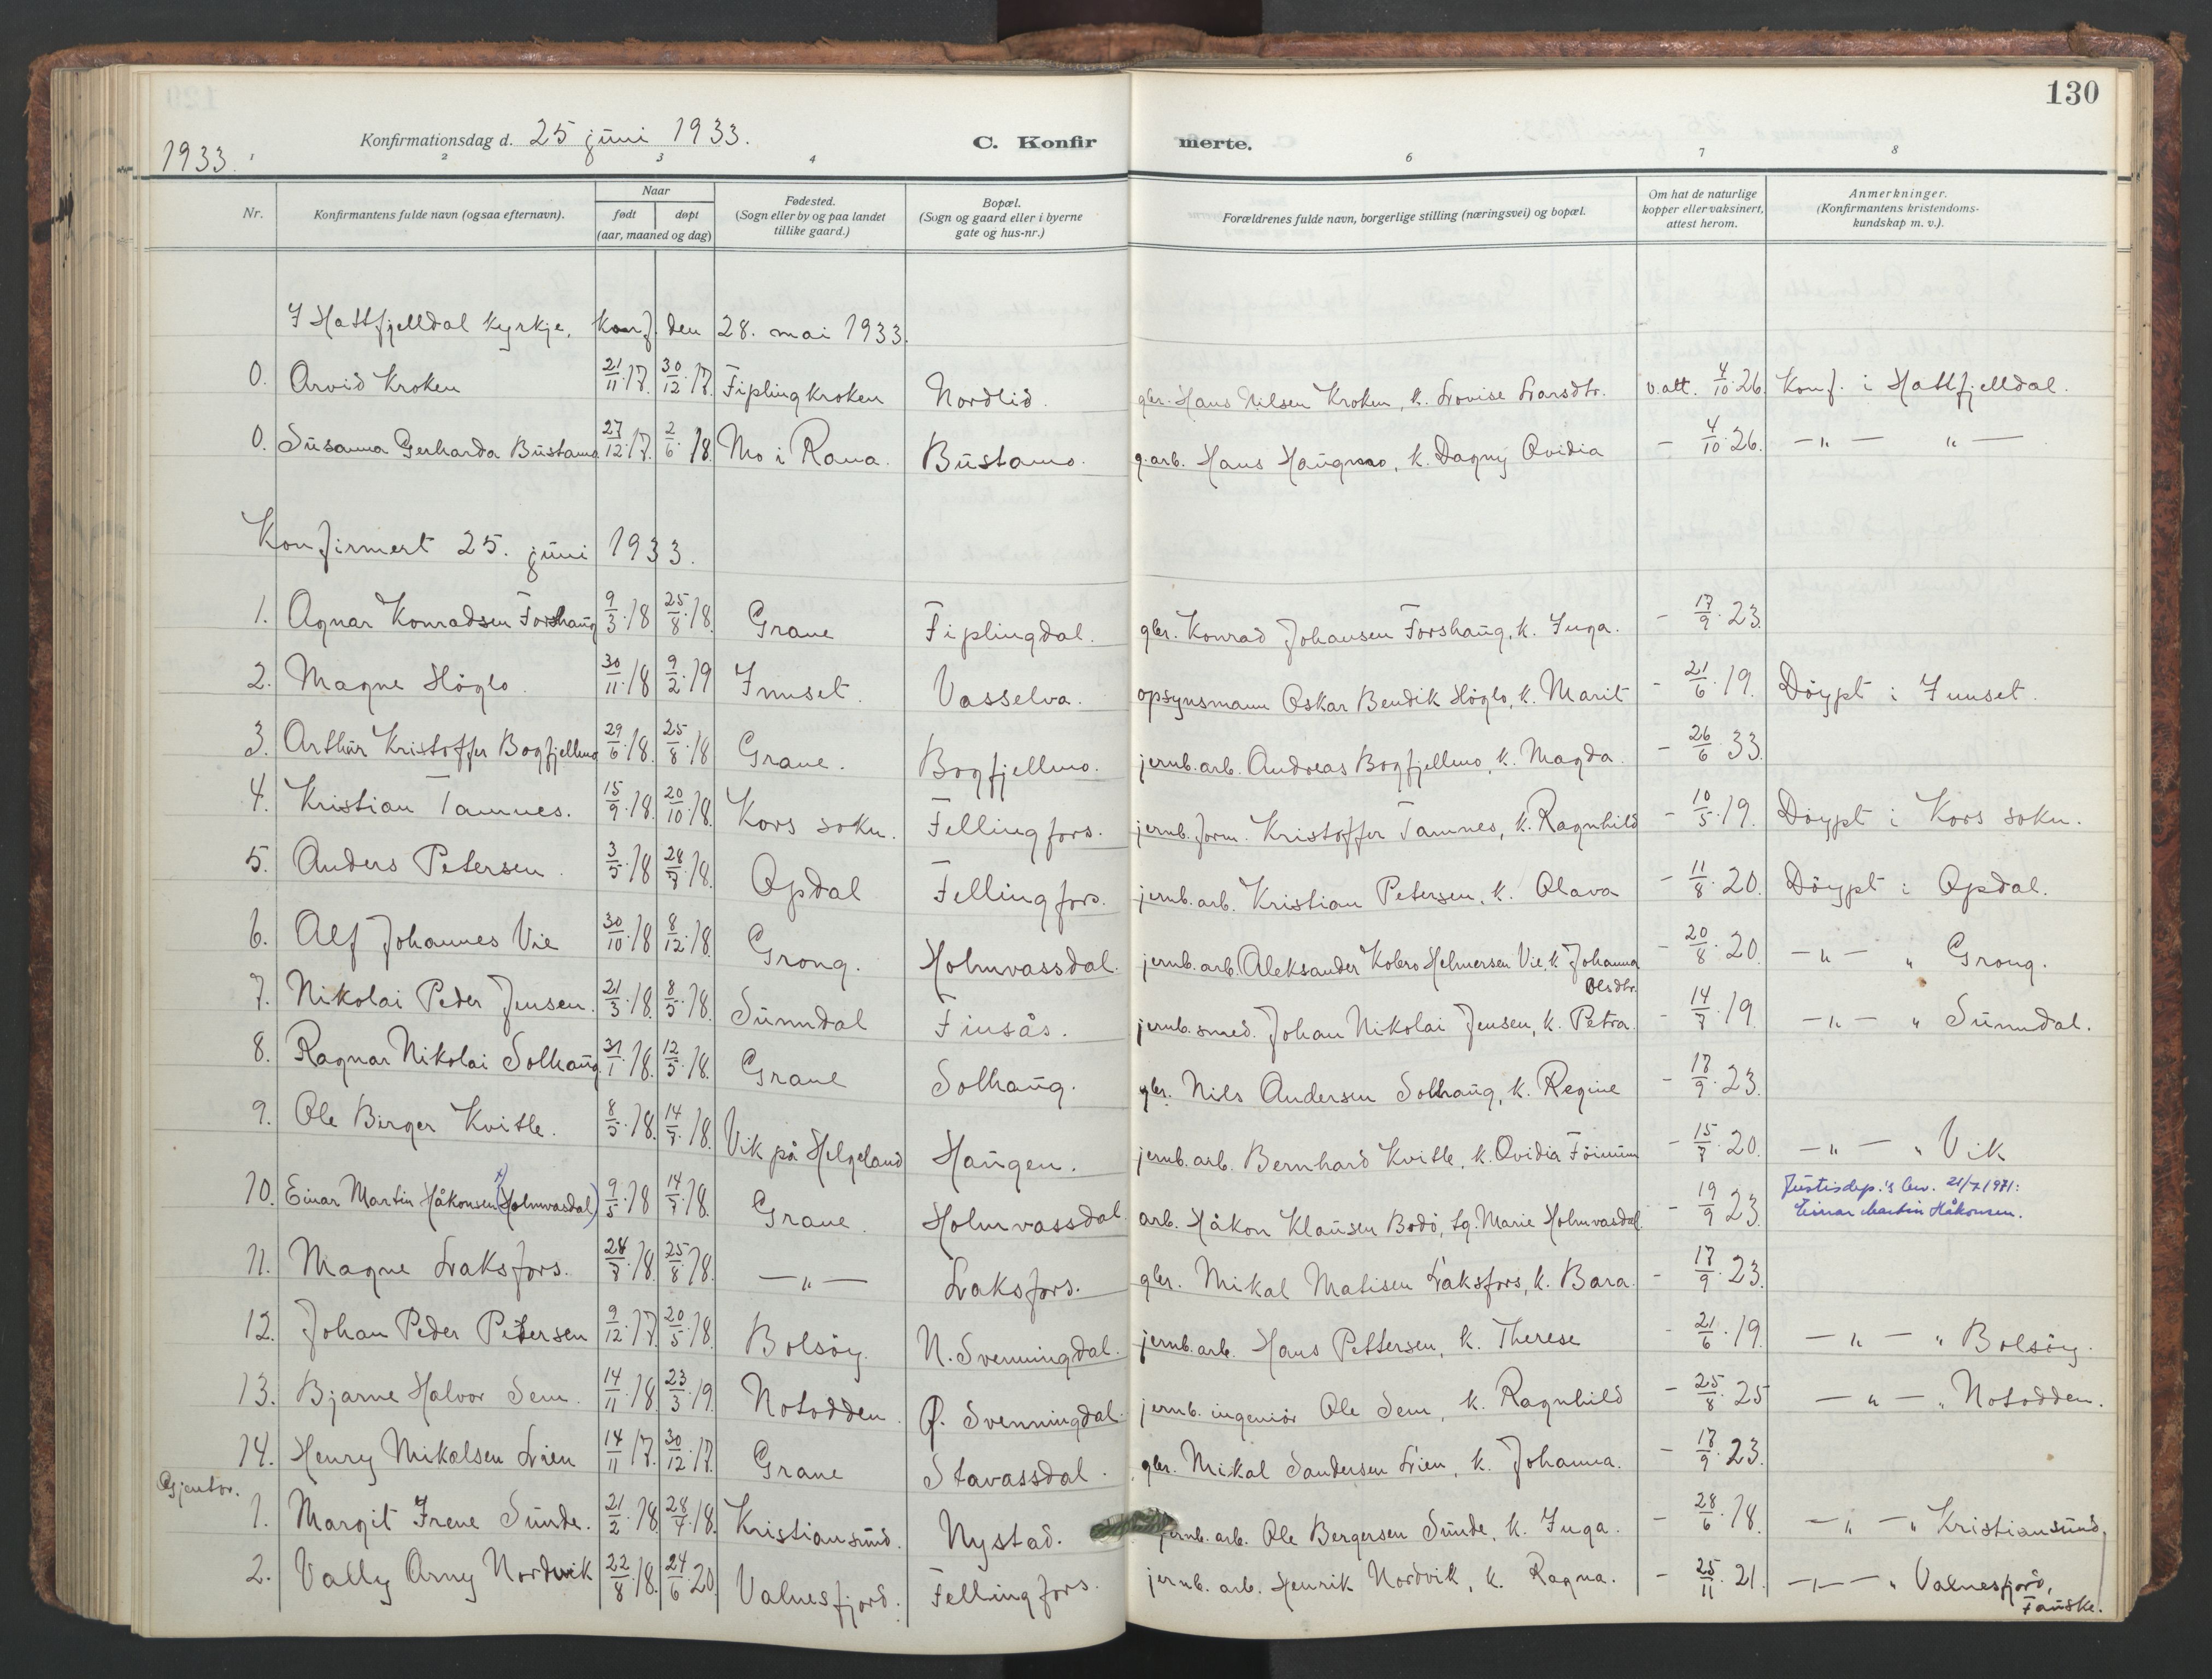 130
1933.
Konfirmationsdag d. 25 juni 1933.
C. Konfirmerte.
1 2 3 4 6 7 8
Nr.
Konfirmantens fulde navn (ogsaa efternavn).
Naar
født
døpt
(aar, maaned og dag)
Fødested.
(Sogn eller by og paa landet
tillike gaard.)
Bopæl.
(Sogn og gaard eller i byerne
gate og hus-nr.)
Forældrenes fulde navn, borgerlige stilling (næringsvei) og bopæl.
Om hat de naturlige
kopper eller vaksinert,
attest herom.
Anmerkninger.
(Konfirmantens kristendoms-
kundskap m. v.).
I Hattfjelldal kyrkje, konf. den 28. mai 1933.
0. Arvid Kroken 21/11.17. 30/12.17. Fiplingkroken Nordlid. gbr. Hans Nilsen Kroken, k. Lovise Larsdtr. v.att. 4/10.26. Konf. i Hattfjelldal.
0. Susanna Gerharda Bustamo 27/12.17. 2/6.18. Mo i Rana. Bustamo. g.arb. Hans Haugmo, k. Dagny Ovidia - 4/10.26. -"- "-
Konfirmert 25. juni 1933.
1. Agnar Konradsen Forshaug 9/3.18 25/8.18. Grane Fiplingdal. gbr. Konrad Johansen Forshaug, k. Inga. - 17/9.23.
2. Magne Höglo. 30/11.18 9/2.19 Innset. Vasselva. opsynsmann Oskar Bendik Höglo, k. Marit - 21/6.19. Döypt i Innset.
3. Arthur Kristoffer Bogfjellmo 29/6.18. 25/8.18 Grane. Bogfjellmo. jernb.arb. Andreas Bogfjellmo, k. Magda. - 26/6.33.
4. Kristian Tamnes. 15/9.18. 20/10.18. Kors sokn. Fellingfors. jernb.form. Kristoffer Tamnes, k. Ragnhild - 10/5.19. Döypt i Kors sokn.
5. Anders Petersen. 3/5.18 28/7.18. Opdal Fellingfors. jernb.arb. Kristian Petersen, k. Olava - 11/8.20. Döypt i Opdal.
6. Alf Johannes Vie 30/10.18 8/12.18. Grong. Holmvassdal. jernb.arb. Aleksander Kolero Helmersen Vie, k. Johanna - 20/8.20. -"- " Grong.
Olsdtr.
7. Nikolai Peder Jensen. 21/3.18. 8/5.18. Sunndal Finsås. jernb.smed. Johan Nikolai Jensen, k. Petra. - 14/7.19. -"- " Sunndal.
8. Ragnar Nikolai Solhaug 31/1.18. 12/5.18. Grane Solhaug. gbr. Nils Andersen Solhaug, k. Regine - 17/9.23.
9. Ole Birger Kvitle. 8/5.18. 14/7.18. Vik på Helgeland Haugen. jernb.arb. Bernhard Kvitle, k. Ovidia - 15/7.20. -"- " Vik
10. Einar Martin Håkonsen (Holmvasdal) 9/5.18 14/7.18. Grane. Holmvassdal. arb. Håkon Klausen Bodö, Marie Holmvasdal. - 19/9.23. Justisdep.'s bev. 21/7.1971:
Einar Martin Håkonsen.
11. Magne Laksfors. 28/7.18. 25/8.18. -"- Laksfors. gbr. Mikal Matisen Laksfors, k. Bara. - 17/9.23.
12. Johan Peder Petersen 9/12.17. 20/5.18. Bolsöy. N. Svenningdal. jernb.arb. Hans Pettersen, k. Therese - 21/6.19. -"- " Bolsöy.
13. Bjarne Halvor Sem. 14/11.18. 23/3.19. Notodden. Ö. Svenningdal. jernb. ingeniör Ole Sem, k. Ragnhild - 25/8.25 -"- " Notodden.
14. Henry Mikalsen Lien 14/11.17. 30/12.17. Grane Stavassdal. gbr. Mikal Sandersen Lien, k. Johanna. - 17/9.23.
Gjentor.
1. Margit Irene Sunde. 21/2.18. 28/4.18. Kristiansund. Nystad. jernb.arb. Ole Bergersen Sunde, k. Inga. - 28/6.18. -"- " Kristiansund.
2. Vally Arny Nordvik 22/8.18. 24/6.20. Valnesfjord. Fellingfors. jernb. arb. Henrik Nordvik, k. Ragna. - 25/11.21. -"- " Valnesfjord,
Fauske.